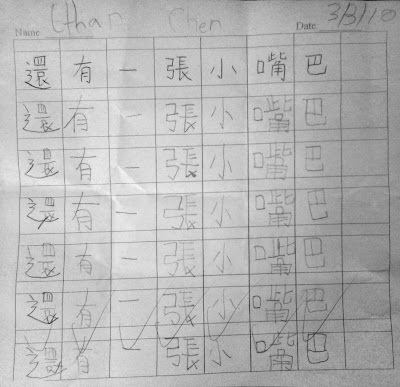 Name Ethan Chen Date 3/3/10
還有一張小嘴巴
還有一張小嘴巴
還有一張小嘴巴
還有一張小嘴巴
還有一張小嘴巴
還有一張小嘴巴
還有一張小嘴巴